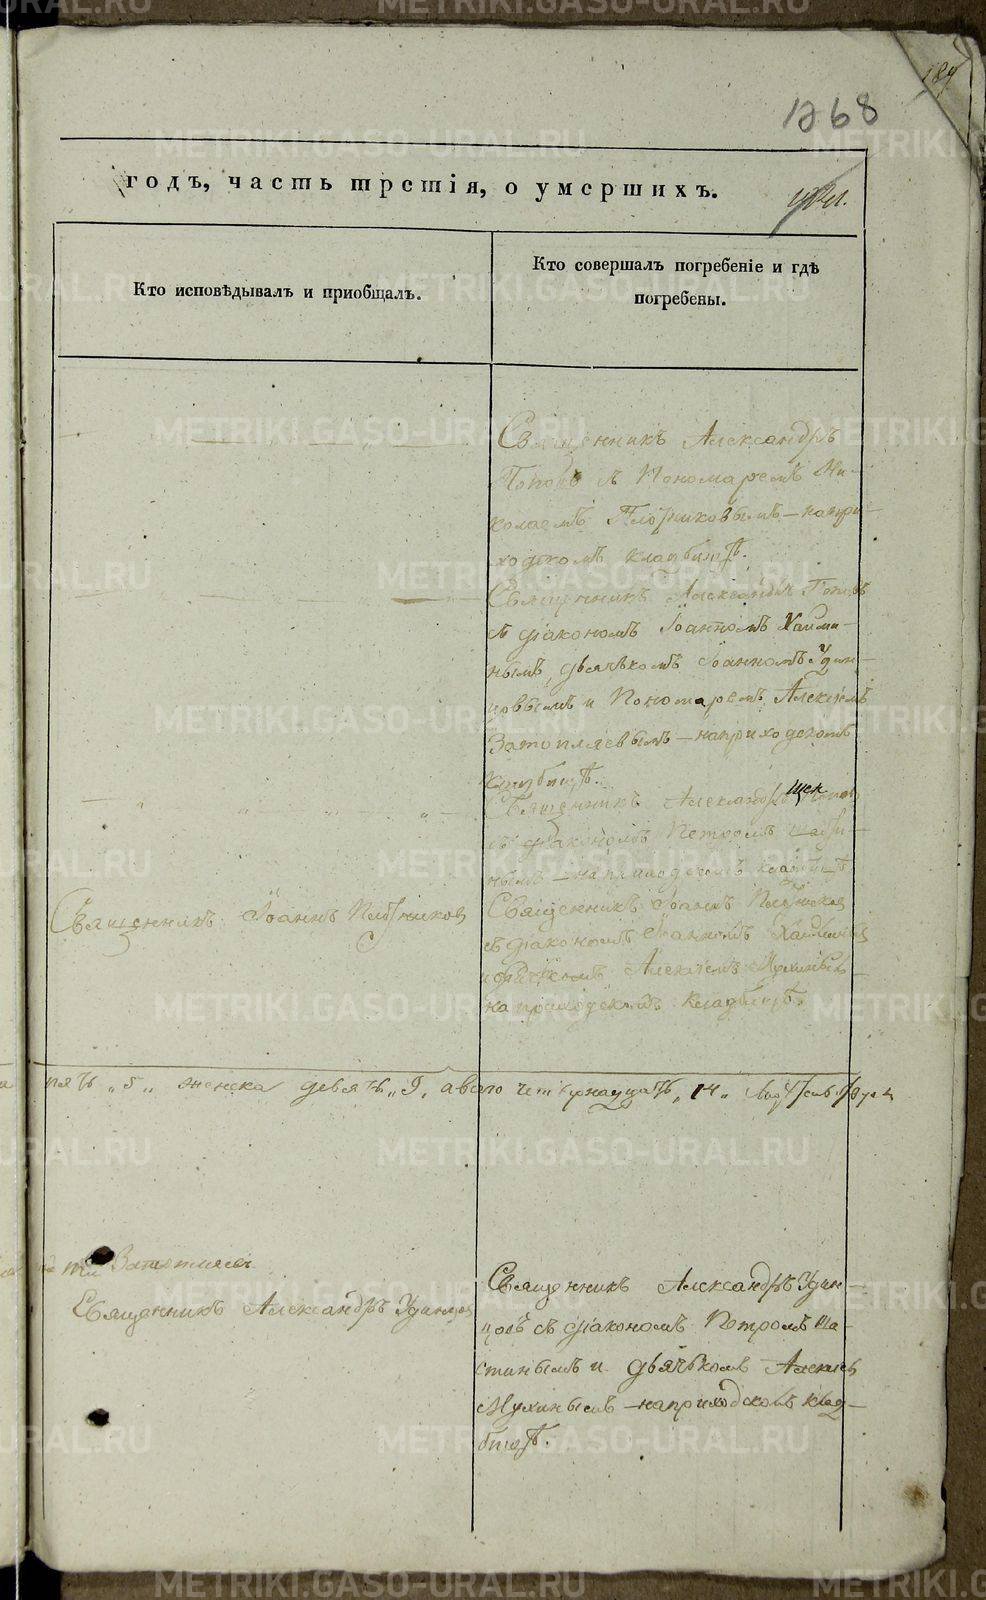 1268
годъ, часть третія, о умершихъ.
Кто исповѣдывалъ и приобщалъ.
Кто совершалъ погребеніе и гдѣ
погребены.
Священникъ Александръ
Поповъ съ Пономаремъ Ни-
колаемъ Плотниковымъ – на при-
ходскомъ кладбищѣ.
Священникъ Александръ Поповъ
съ діакономъ Іоанномъ
нымъ, дьячкомъ Іоанномъ Удин-
цовымъ и Пономаремъ Алексіемъ
Затопляевымъ – на приходскомъ
кладбищѣ.
Священникъ Александръ
съ діакономъ Петромъ
нымъ – на приходскомъ кладбищѣ
Священникъ Іоаннъ Плотников
Священникъ Іоаннъ Плотников
съ діакономъ Іоанномъ
и дьячкомъ Алексіемъ Мухинымъ
на приходскомъ кладбищѣ.
пять „5„ женска девять „9„ а всего четырнадцать „14„
Затопляевъ
Священникъ Александръ Удинцов
Священникъ Александръ Удин-
цовъ съ діакономъ Петромъ Ша-
стинымъ и дьячкомъ Алексіем
Мухинымъ – на приходскомъ клад-
бищѣ.
METRIKI.GASO-URAL.RU